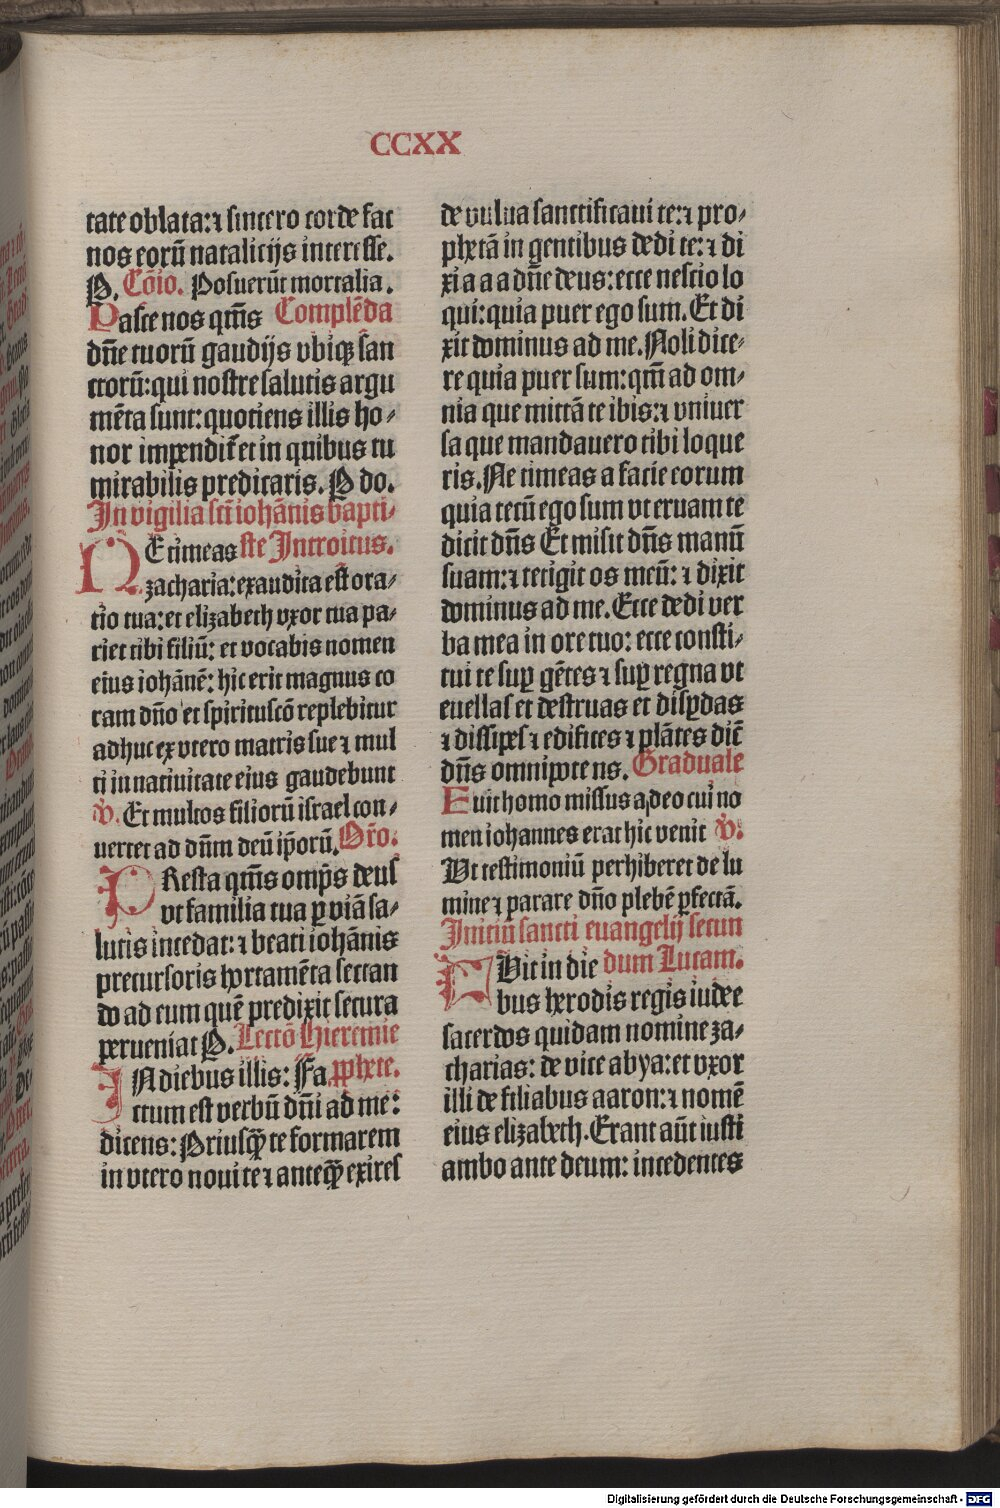 CCXX
tate oblata: ⁊ sincero corde fac
nos eorū natalicijs interesse.
P. Cōio. Posuerūt mortalia.
Pasce nos qm̄s Complēda
dn̄e tuorū gaudijs vbiqꝫ san
ctorū: qui nostre salutis argu
mēta sunt: quotiens illis ho-
nor impendit̄ et in quibus tu
mirabilis predicaris. P do.
In vigilia scti iohānis bapti-
NE timeas ste Introitus.
zacharia: exaudita est ora-
tio tua: et elizabeth vxor tua pa-
riet tibi filiū: et vocabis nomen
eius iohānē: hic erit magnus co
ram dn̄o et spiritu scō replebitur
adhuc ex vtero matris sue ⁊ mul
ti in natiuitate eius gaudebunt
V̄. Et multos filiorū israel con-
uertet ad dn̄m deū ip̄orū. Or̄o.
PResta qm̄s omp̄s deus
vt familia tua ꝑ viā sa-
lutis incedat: ⁊ beati iohānis
precursoris hortamēta sectan
do ad eum quē predixit secura
perueniat P. Lectō Hieremie
IN diebus illis: Fa ꝓphete.
ctum est verbū dn̄i ad me:
dicens: Priusꝙ̄ te formarem
in vtero noui te ⁊ anteꝙ̄ exires
de vulua sanctificaui te: ⁊ pro-
phetā in gentibus dedi te: ⁊ di
xi a a a dn̄e deus: ecce nescio lo
qui: quia puer ego sum. Et di
xit dominus ad me. Noli dice-
re quia puer sum: qm̄ ad om-
nia que mittā te ibis: ⁊ vniuer
sa que mandauero tibi loque
ris. Ne timeas a facie eorum
quia tecū ego sum vt eruam te
dicit dn̄s Et misit dn̄s manū
suam: ⁊ tetigit os meū: ⁊ dixit
dominus ad me. Ecce dedi ver
ba mea in ore tuo: ecce consti-
tui te suꝑ gētes ⁊ suꝑ regna vt
euellas et destruas et disꝑdas
⁊ dissipes ⁊ edifices ⁊ plātes dic̄
dn̄s omnipotens. Graduale
Fuit homo missus a deo cui no
men iohannes erat hic venit V̄.
Vt testimoniū perhiberet de lu
mine ⁊ parare dn̄o plebē ꝑfectā.
Initiū sancti euangelij secun
FVit in die dum Lucam.
bus herodis regis iudee
sacerdos quidam nomine za-
charias: de vice abya: et vxor
illi de filiabus aaron: ⁊ nomē
eius elizabeth. Erant aūt iusti
ambo ante deum: incedentes
Digitalisierung gefördert durch die Deutsche Forschungsgemeinschaft - DFG